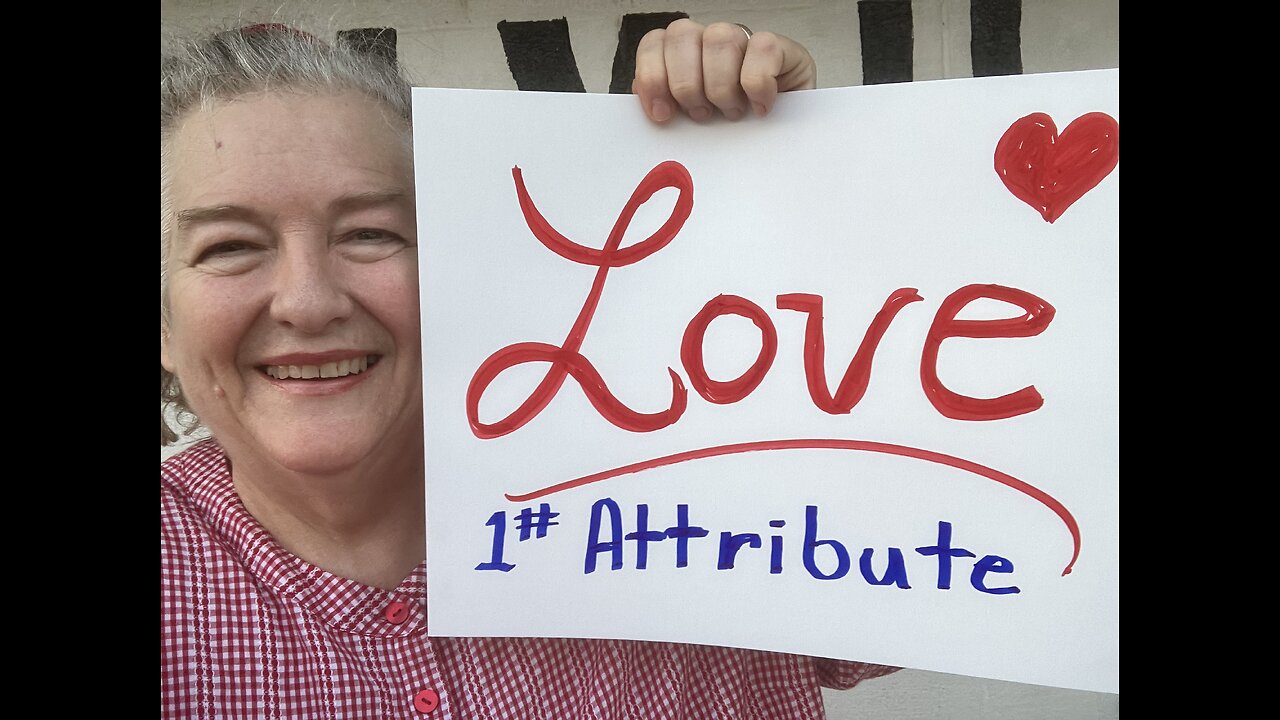 Love
1# Attribute